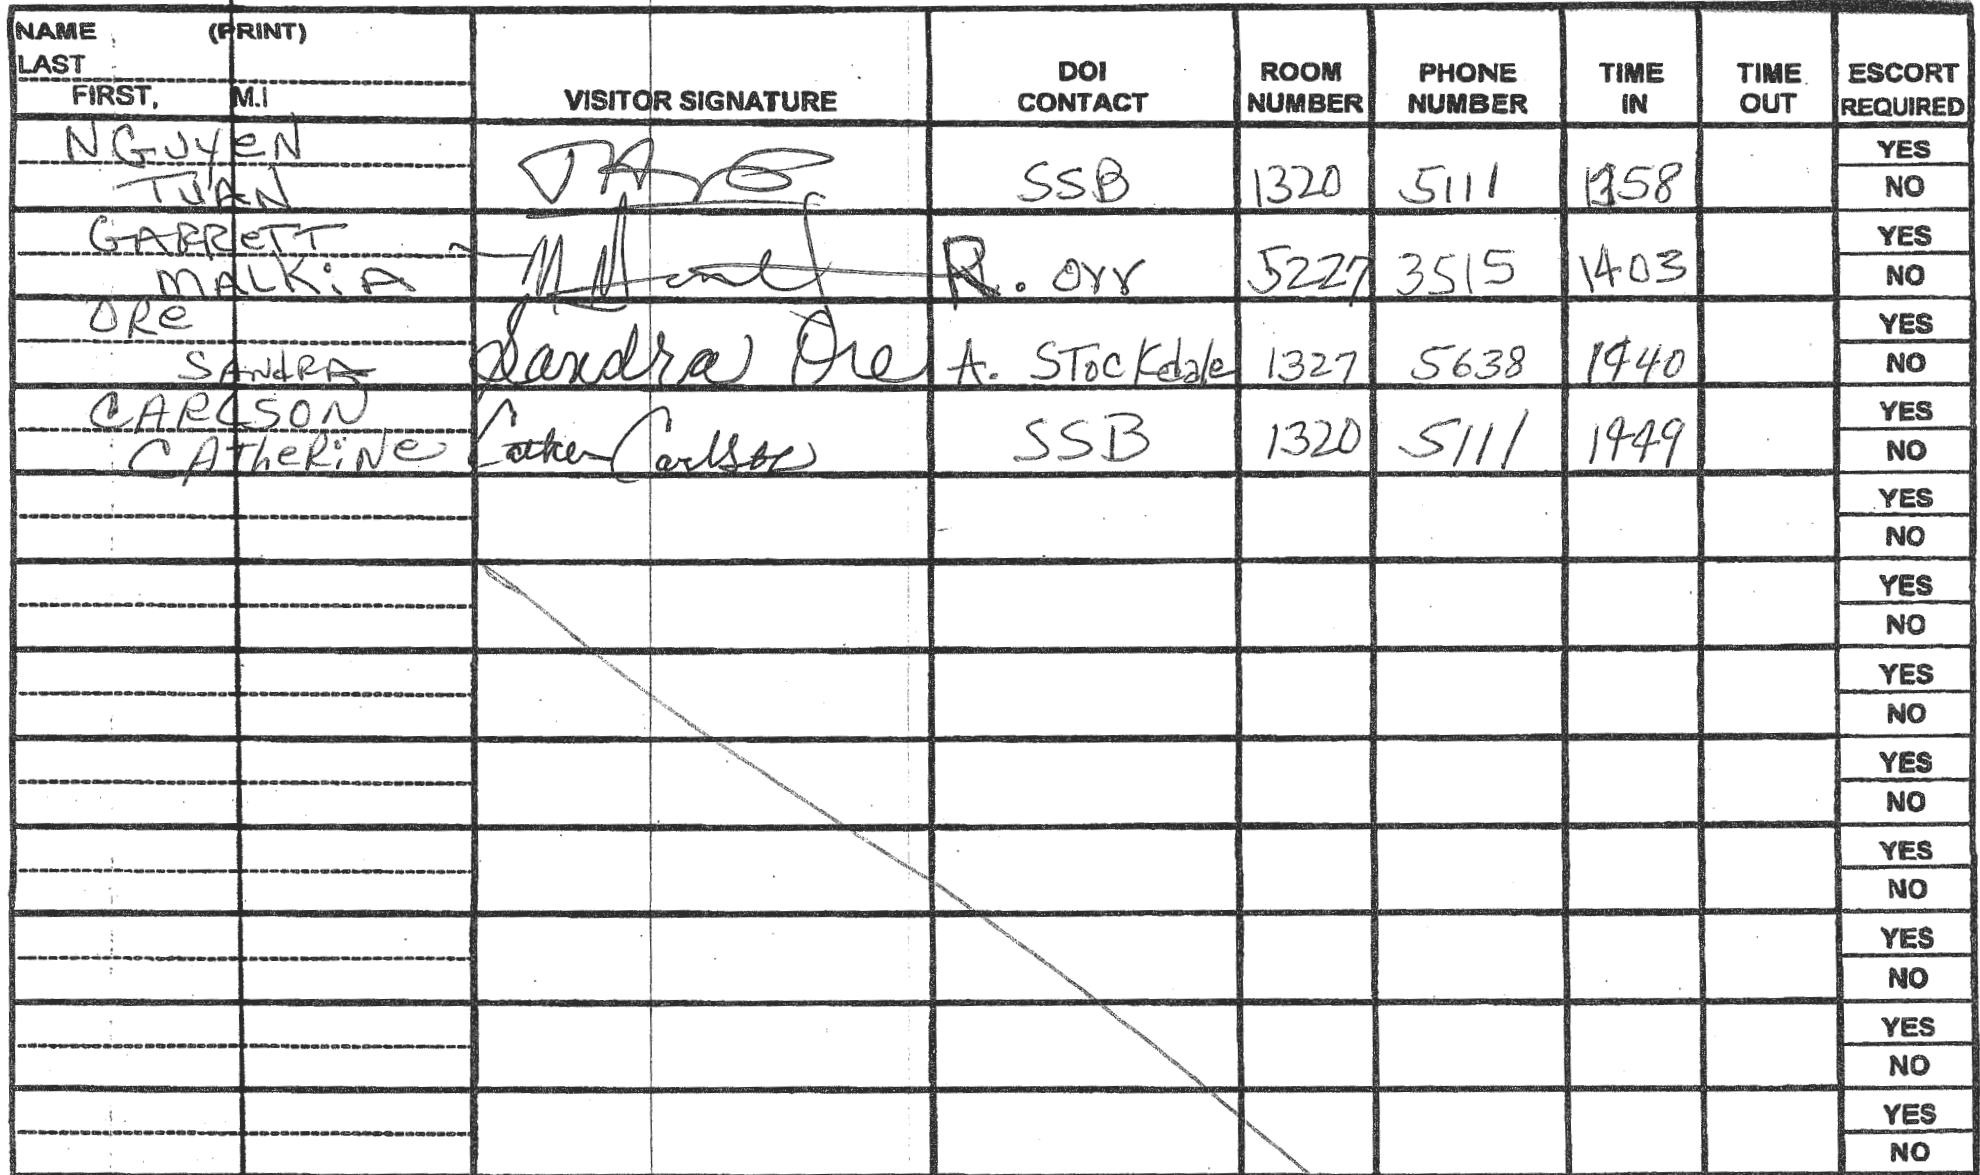 NAME (PRINT)
LAST
FIRST, M.I
VISITOR SIGNATURE
DOI CONTACT
ROOM NUMBER
PHONE NUMBER
TIME IN
TIME OUT
ESCORT REQUIRED
NGUYEN
TUAN
SSB 1320 5111 1358
YES
NO
GARRETT
MALKIA
R. Orr 5227 3515 1403
YES
NO
ORE
SANDRA
Sandra Ore A. Stockdale 1327 5638 1440
YES
NO
CARLSON
CATHERINE
Carlson SSB 1320 5111 1449
YES
NO
YES
NO
YES
NO
YES
NO
YES
NO
YES
NO
YES
NO
YES
NO
YES
NO